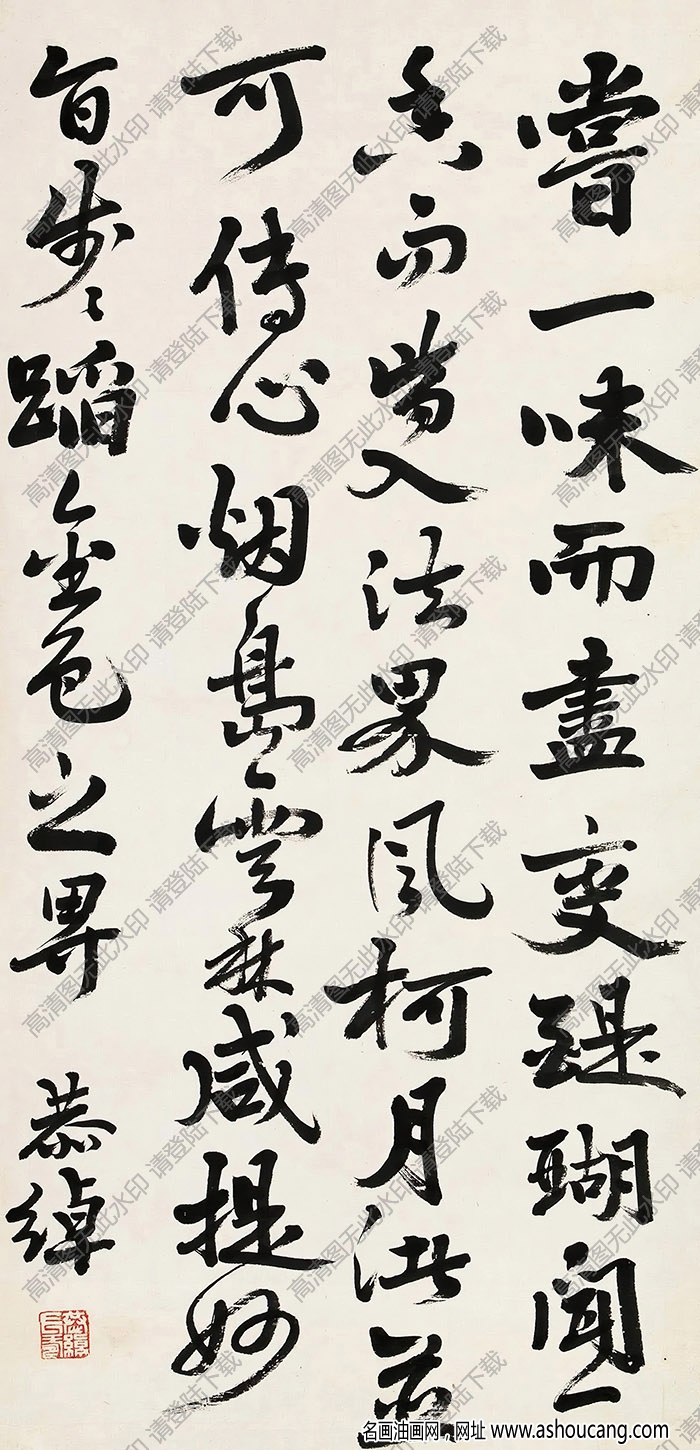 嘗一味而盡变醍醐聞一
香而皆入法界風柯月渚並
可傳心烟島雲林咸提妙
旨步〻蹈金色之界
恭綽
高清图无此水印 请登陆下载
名画油画网，网址 www.ashoucang.com